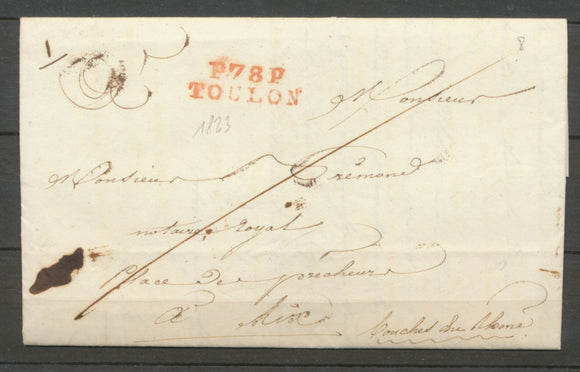 8
P78P
TOULON
Monsieur
1823
Monsieur Trémond
notaire Royal
Place des precheurs
a Aix
bouches du Rhone